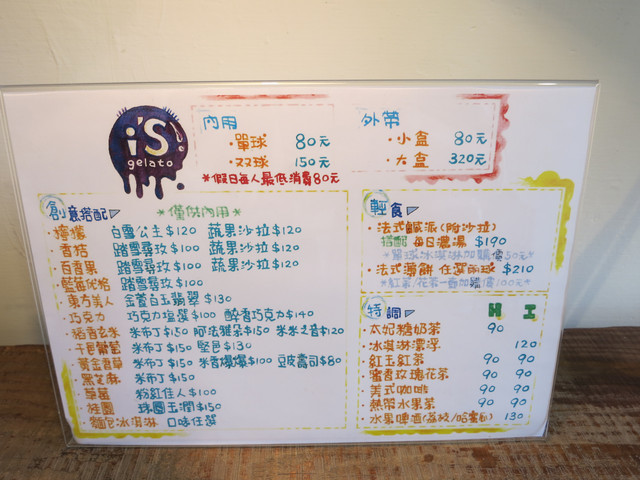 i's
gelato
內用
·單球 80元
·双球 150元
*假日每人最低消費80元
外帶
·小盒 80元
·大盒 320元
創意搭配
*僅供內用*
·檸檬 白雪公主$120 蔬果沙拉$120
·香桔 踏雪尋玫$100 蔬果沙拉$120
·百香果 踏雪尋玫$100 蔬果沙拉$120
·藍莓優格 踏雪尋玫$100
·東方美人 金萱白玉翡翠$130
·巧克力 巧克力堡壘$100 醉香巧克力$140
·稻香玄米 米布丁$150 阿法雜朵$150 米米之音$120
·干邑葡萄 米布丁$150 堅邑$130
·黃金香草 米布丁$150 米香爆爆$100 豆皮壽司$80
·黑芝麻 米布丁$150
·草莓 粉紅佳人$100
·桂圓 珠圓玉潤$150
·麵包冰淇淋 口味任選
輕食
·法式鹹派(附沙拉)
搭配每日濃湯 $190
*單球冰淇淋加購價50元*
·法式薄餅 任選兩球 $210
*紅茶/花茶一壺加購價100元*
特調 H I
·太妃糖奶茶 90
·冰淇淋漂浮 120
·紅玉紅茶 90 90
·蜜香玫瑰花茶 90 90
·美式咖啡 90 90
·熱帶水果茶 90 90
·水果啤酒(荔枝/哈蜜瓜) 130